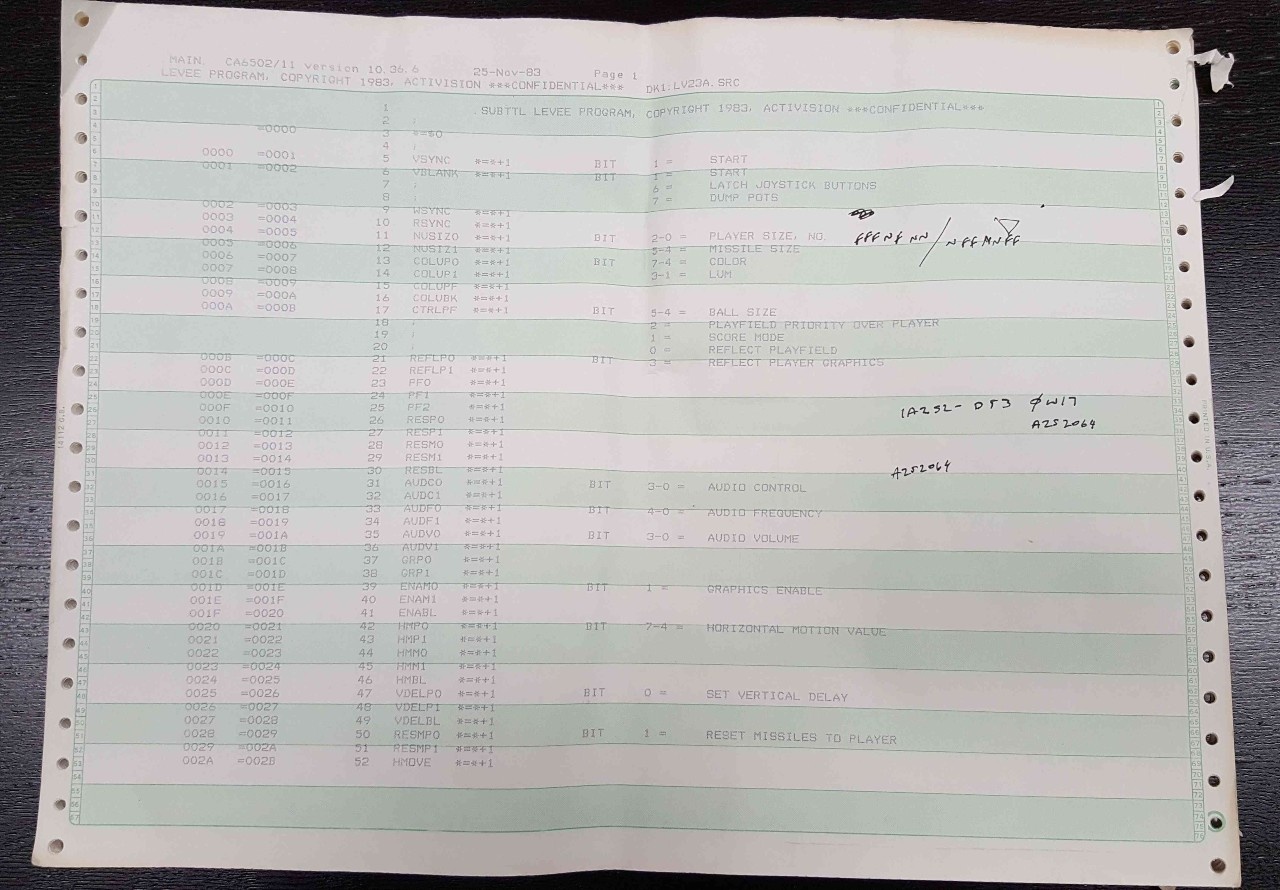 MAIN. CA6502/11 Version 10.36.6 25-Nov-83 Page 1
LEVEE PROGRAM, COPYRIGHT 1983, ACTIVISION ***CONFIDENTIAL*** DK1:LV23A.SRC
1 .SUBTTL LEVEE PROGRAM, COPYRIGHT 1983, ACTIVISION ***CONFIDENTIAL***
2 ;
=0000 3 *=$0
4 ;
0000 =0001 5 VSYNC *=*+1 BIT 1 = START
0001 =0002 6 VBLANK *=*+1 BIT 1 = START
7 ; 6 = LATCH JOYSTICK BUTTONS
8 ; 7 = DUMP POTS
0002 =0003 9 WSYNC *=*+1
0003 =0004 10 RSYNC *=*+1
0004 =0005 11 NUSIZ0 *=*+1 BIT 2-0 = PLAYER SIZE, NO.
0005 =0006 12 NUSIZ1 *=*+1 5-4 = MISSILE SIZE
0006 =0007 13 COLUP0 *=*+1 BIT 7-4 = COLOR
0007 =0008 14 COLUP1 *=*+1 3-1 = LUM
0008 =0009 15 COLUPF *=*+1
0009 =000A 16 COLUBK *=*+1
000A =000B 17 CTRLPF *=*+1 BIT 5-4 = BALL SIZE
18 ; 2 = PLAYFIELD PRIORITY OVER PLAYER
19 ; 1 = SCORE MODE
20 ; 0 = REFLECT PLAYFIELD
000B =000C 21 REFLP0 *=*+1 BIT 3 = REFLECT PLAYER GRAPHICS
000C =000D 22 REFLP1 *=*+1
000D =000E 23 PF0 *=*+1
000E =000F 24 PF1 *=*+1
000F =0010 25 PF2 *=*+1
0010 =0011 26 RESP0 *=*+1
0011 =0012 27 RESP1 *=*+1
0012 =0013 28 RESM0 *=*+1
0013 =0014 29 RESM1 *=*+1
0014 =0015 30 RESBL *=*+1
0015 =0016 31 AUDC0 *=*+1 BIT 3-0 = AUDIO CONTROL
0016 =0017 32 AUDC1 *=*+1
0017 =0018 33 AUDF0 *=*+1 BIT 4-0 = AUDIO FREQUENCY
0018 =0019 34 AUDF1 *=*+1
0019 =001A 35 AUDV0 *=*+1 BIT 3-0 = AUDIO VOLUME
001A =001B 36 AUDV1 *=*+1
001B =001C 37 GRP0 *=*+1
001C =001D 38 GRP1 *=*+1
001D =001E 39 ENAM0 *=*+1 BIT 1 = GRAPHICS ENABLE
001E =001F 40 ENAM1 *=*+1
001F =0020 41 ENABL *=*+1
0020 =0021 42 HMP0 *=*+1 BIT 7-4 = HORIZONTAL MOTION VALUE
0021 =0022 43 HMP1 *=*+1
0022 =0023 44 HMM0 *=*+1
0023 =0024 45 HMM1 *=*+1
0024 =0025 46 HMBL *=*+1
0025 =0026 47 VDELP0 *=*+1 BIT 0 = SET VERTICAL DELAY
0026 =0027 48 VDELP1 *=*+1
0027 =0028 49 VDELBL *=*+1
0028 =0029 50 RESMP0 *=*+1 BIT 1 = RESET MISSILES TO PLAYER
0029 =002A 51 RESMP1 *=*+1
002A =002B 52 HMOVE *=*+1
A252064
A252064
PRINTED IN U.S.A.